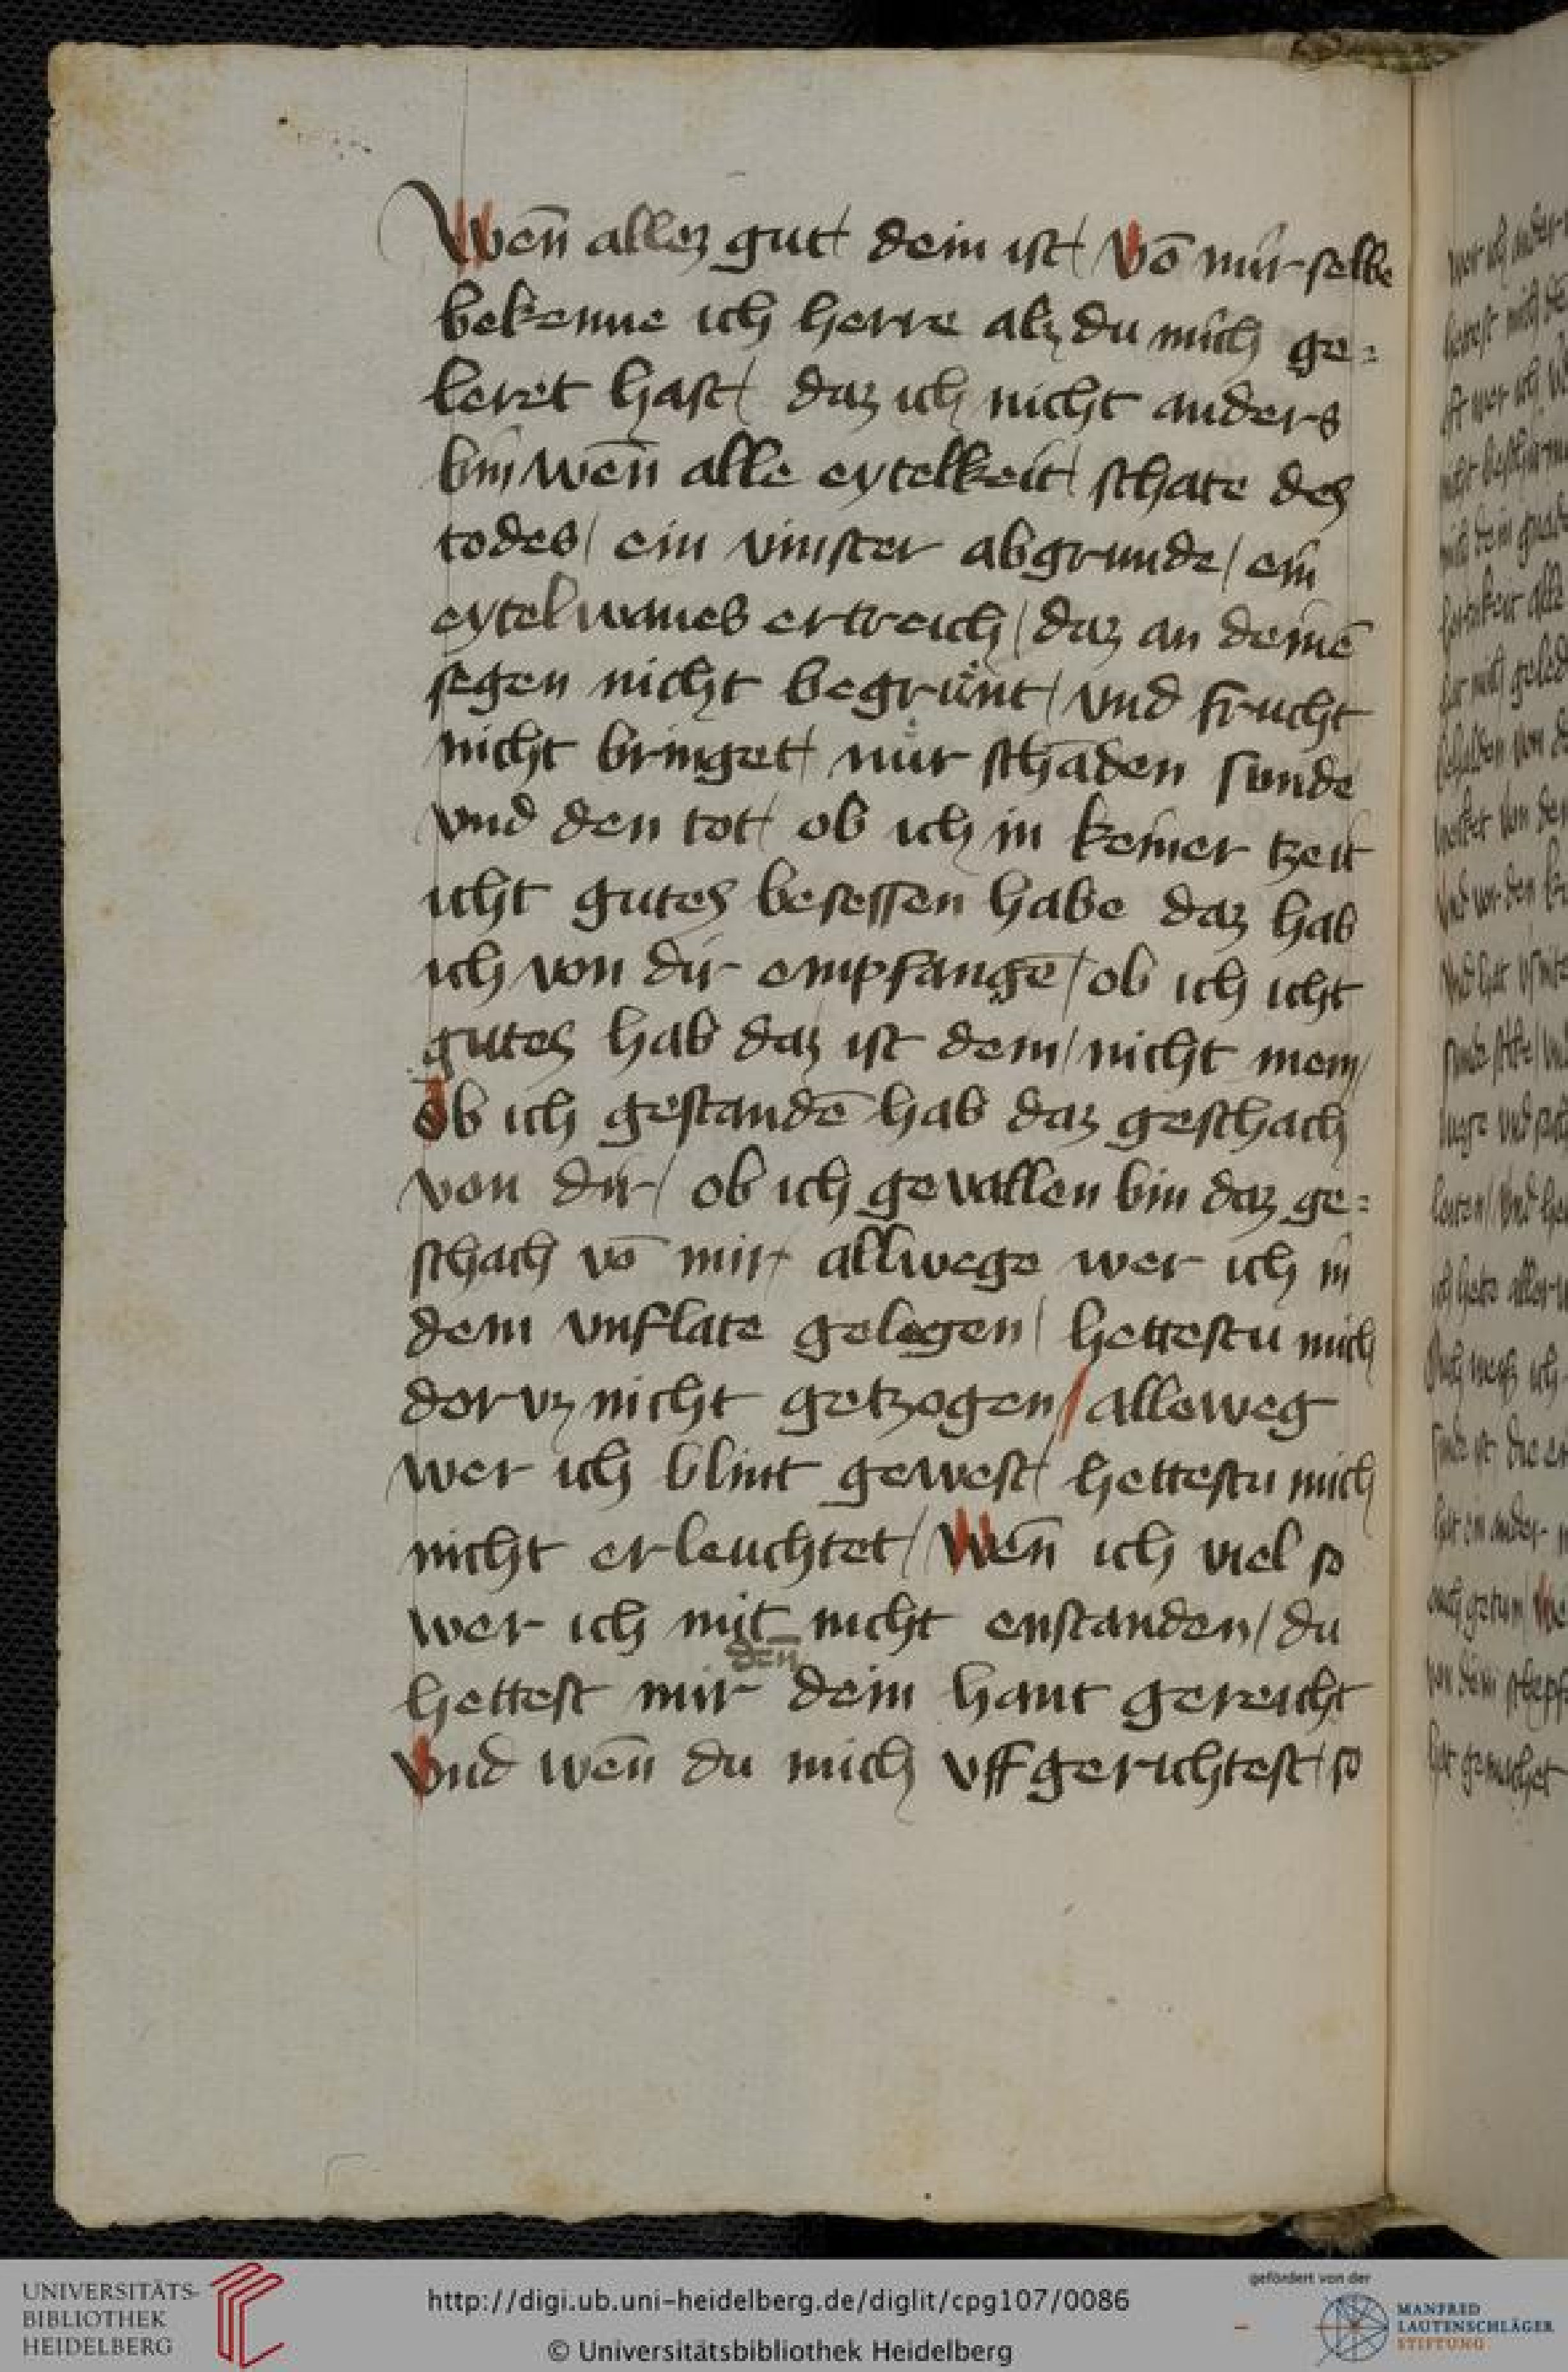 Wen̄ allez gut dein ist / Vō mir selbe
bekenne ich herre alz du mich ge=
leret hast / daz ich nicht anders
bin wen̄ alle eytelkeit / schate des
todes / ein vinster abgrunde / ein
eytel wanes ertreich / daz an deinē
segen nicht begrůnt / vnd frucht
nicht bringet / nůr schaden sunde
vnd den tot / ob ich in keiner tzeit
icht gutes besessen habe daz hab
ich von dir empfangē / ob ich icht
gutes hab daz ist dein / nicht mein /
Ob ich gestandē hab daz geschach
von dir / ob ich gevallen bin daz ge=
schach vō mir / allwege wer ich in
dem vnflate gelegen / hettestu mich
dor vz nicht getzogen / alleweg
wer ich blint gewest / hettestu mich
nicht erleuchtet / Wen̄ ich viel so
wer ich mit nicht enstanden / du
den
hettest mir dein hant gereicht
Vnd wen̄ du mich vff gerichtest / so
UNIVERSITÄTS-
BIBLIOTHEK
HEIDELBERG
http://digi.ub.uni-heidelberg.de/diglit/cpg107/0086
© Universitätsbibliothek Heidelberg
gefördert von der
MANFRED
LAUTENSCHLÄGER
STIFTUNG